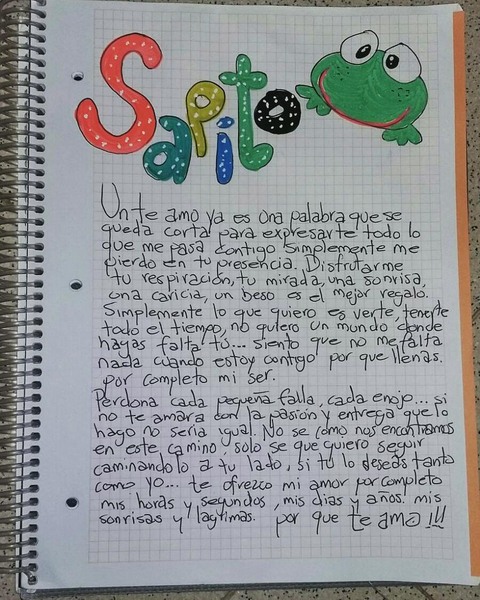 Sapito
Un te amo ya es una palabra que se
queda corta para expresarte todo lo
que me pasa contigo simplemente me
pierdo en tu presencia. Disfrutarme
tu respiración, tu mirada, una sonrisa,
una caricia, un beso es el mejor regalo.
Simplemente lo que quiero es verte, tenerte
todo el tiempo, no quiero un mundo donde
hagas falta tú... siento que no me falta
nada cuando estoy contigo por que llenas
por completo mi ser.
Perdona cada pequeña falla, cada enojo... si
no te amara con la pasión y entrega que lo
hago no sería igual. No se como nos encontramos
en este camino, solo se que quiero seguir
caminandolo a tu lado, si tú lo deseas tanto
como yo... te ofrezco mi amor por completo
mis horas y segundos, mis dias y años! mis
sonrisas y lagrimas. por que te amo!!!